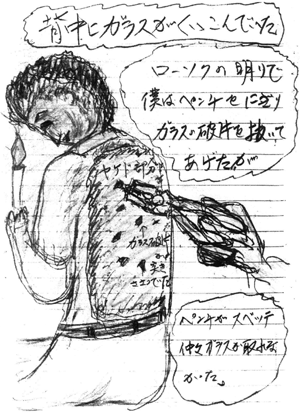 背中にガラスがくいこんでいた
ローソクの明りで
僕はペンチをにぎり
ガラスの破片を抜いて
あげたが
ヤケド部分
ガラス破片
が
突き
ささっていた
ペンチがスベッテ
仲々ガラスが取れな
かった。